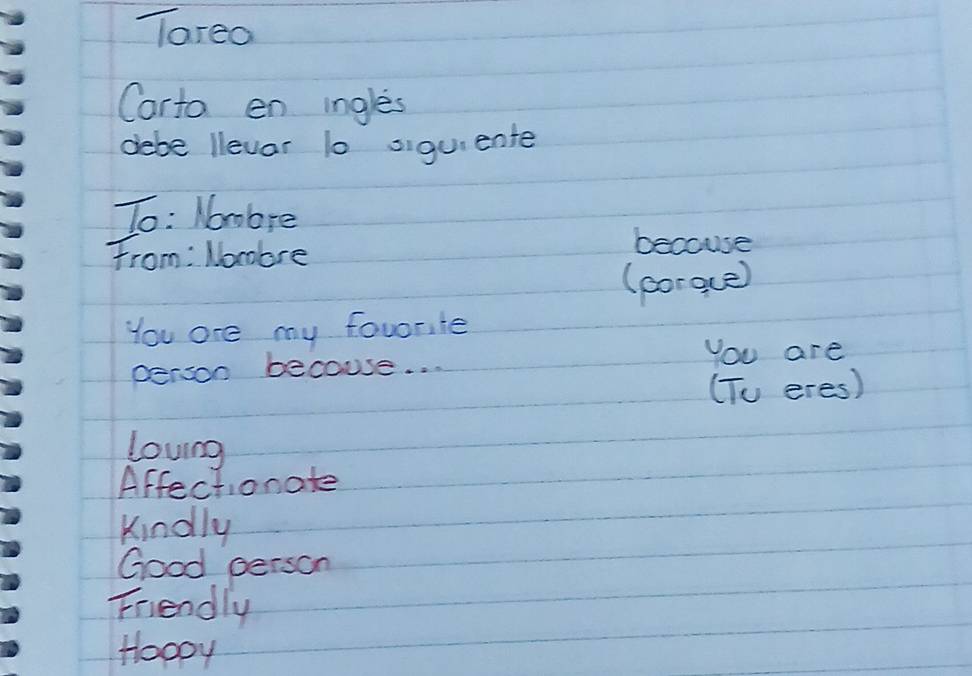 Tarea
Carta en inglés
debe llevar lo siguiente
To: Nombre
From: Nombre
because
(porque)
You are my favorite
person because...
You are
(Tu eres)
Loving
Affectionate
Kindly
Good person
Friendly
Happy